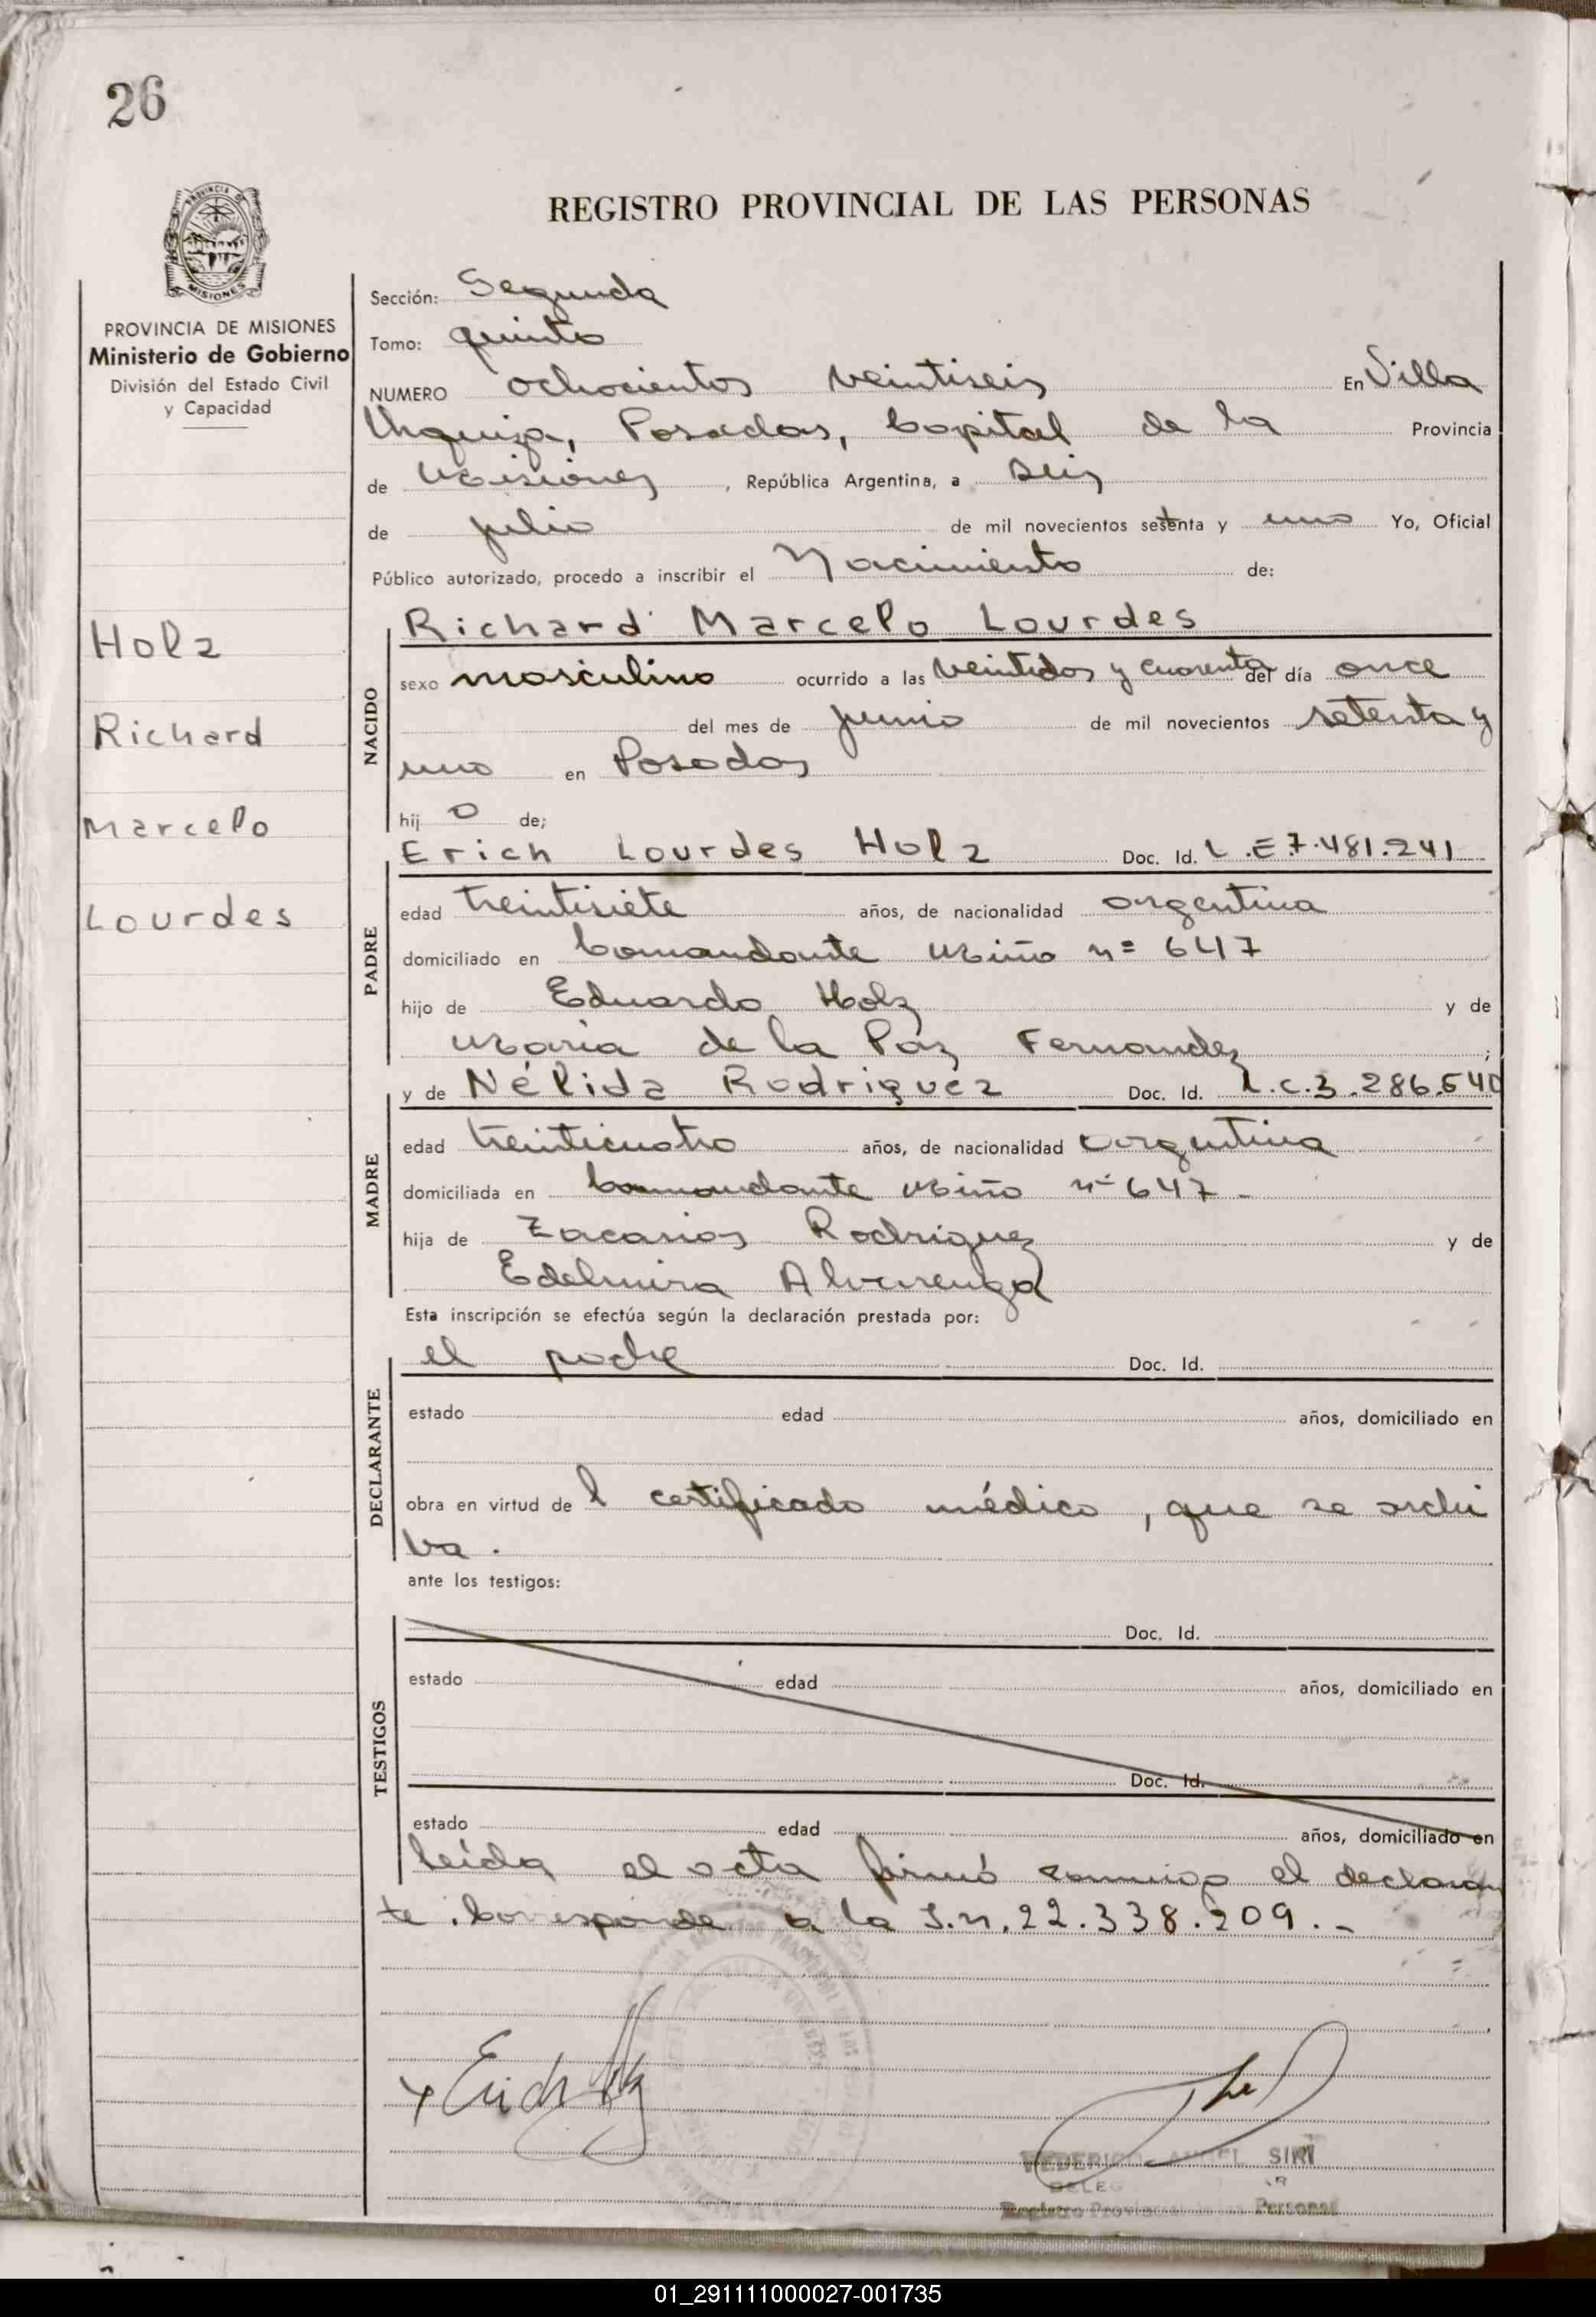 26
PROVINCIA DE
MISIONES
PROVINCIA DE MISIONES
Ministerio de Gobierno
División del Estado Civil
y Capacidad
Holz
Richard
Marcelo
Lourdes
REGISTRO PROVINCIAL DE LAS PERSONAS
Sección: Segunda
Tomo: quinto
NUMERO ochocientos veintiseis En Villa
Urquiza, Posadas, Capital de la Provincia
de Misiones, República Argentina, a seis
de julio de mil novecientos setenta y uno Yo, Oficial
Público autorizado, procedo a inscribir el Nacimiento de:
NACIDO
Richard Marcelo Lourdes
sexo masculino ocurrido a las veintidos y cuarenta del día once
del mes de junio de mil novecientos setenta y
uno en Posadas
hij o de;
PADRE
Erich Lourdes Holz Doc. Id. L.E.7.481.241
edad treintisiete años, de nacionalidad argentina
domiciliado en Comandante Miño nº 647
hijo de Eduardo Holz y de
María de la Paz Fernandez;
MADRE
y de Nélida Rodriguez Doc. Id. L.C.3.286.540
edad treinticuatro años, de nacionalidad argentina
domiciliada en Comandante Miño nº 647 -
hija de Zacarias Rodriguez y de
Edelmira Alvarenga
Esta inscripción se efectúa según la declaración prestada por:
DECLARANTE
el padre Doc. Id.
estado edad años, domiciliado en
obra en virtud de l certificado médico, que se archi
va.
ante los testigos:
TESTIGOS
Doc. Id.
estado edad años, domiciliado en
Doc. Id.
estado edad años, domiciliado en
leída el acta firmó conmigo el declaran
te. Corresponde a la I.n. 22.338.209.-
x Erich Holz
FEDERICO ANGEL SIRI
Registro Provincial de las Personas
01_291111000027-001735